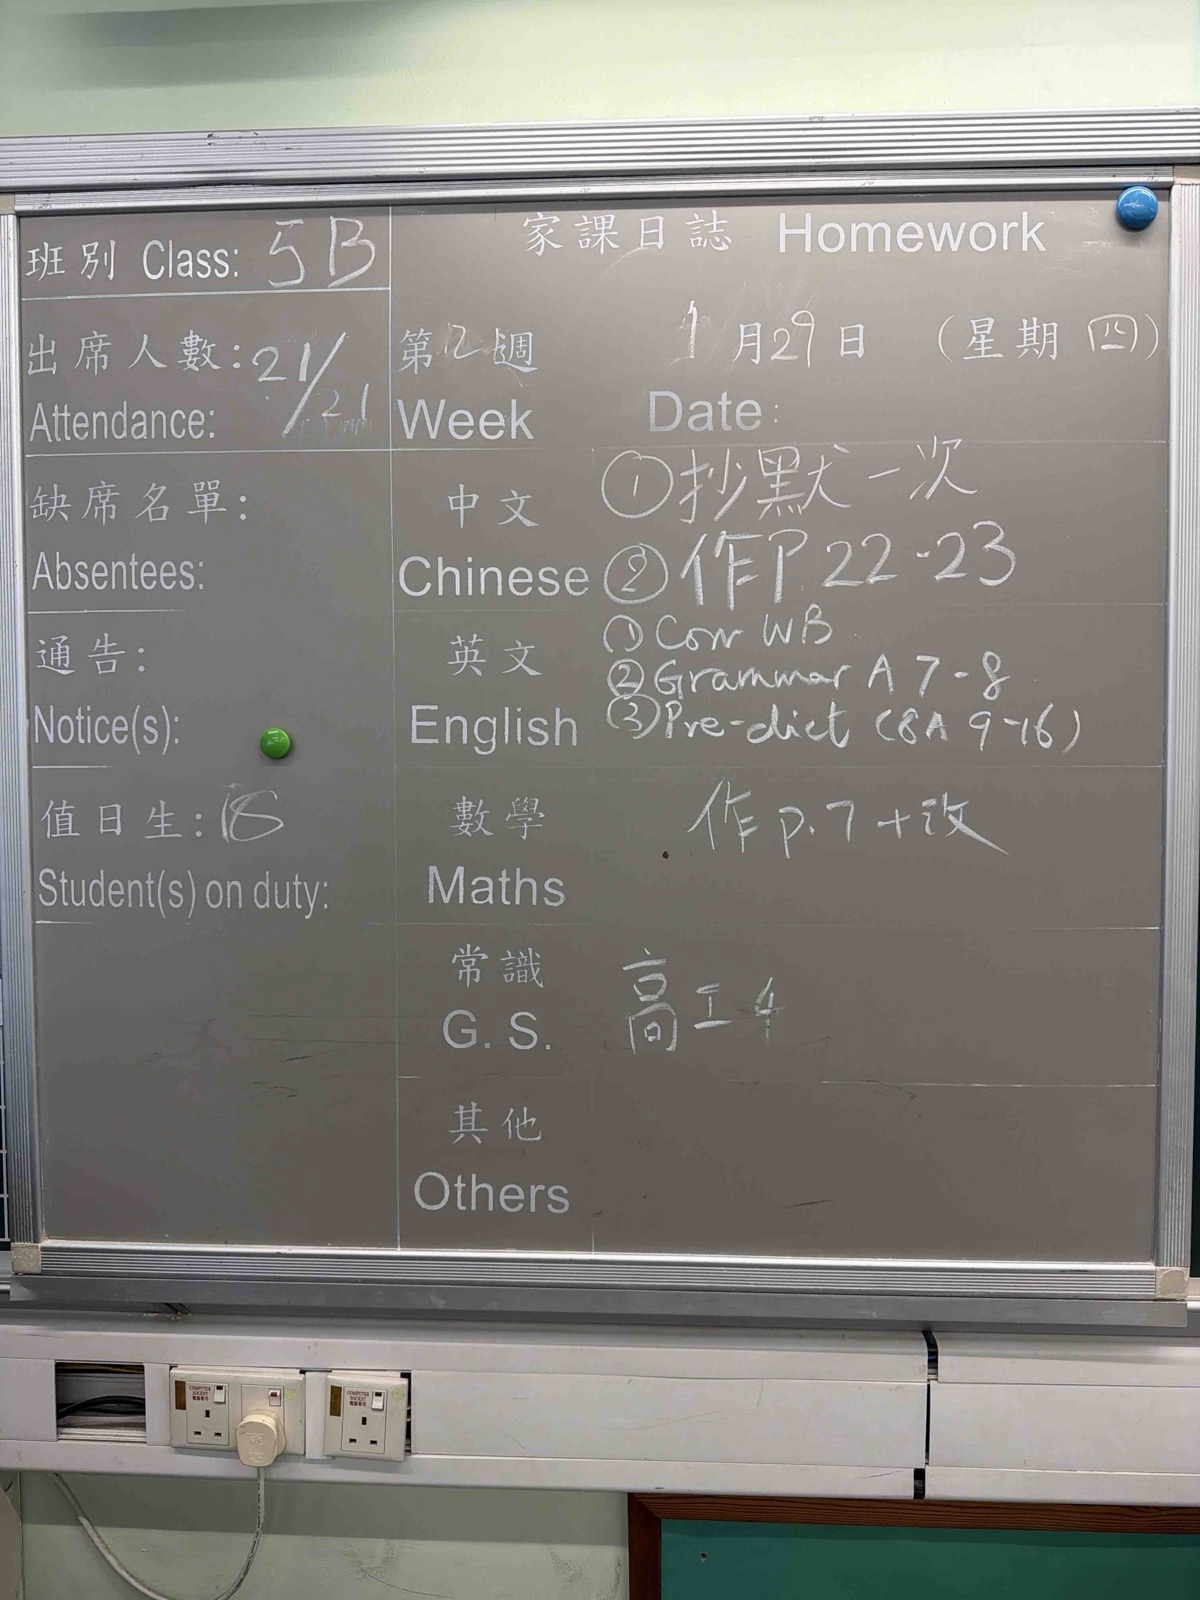 班別 Class: 5B
家課日誌 Homework
出席人數: 21/21
Attendance:
第2週 1月29日 (星期四)
Week Date:
缺席名單:
Absentees:
中文 ①抄默一次
Chinese ②作P.22-23
通告:
Notice(s):
英文 ①Corr WB
②Grammar A 7-8
English ③Pre-dict (8A 9-16)
值日生: 18
Student(s) on duty:
數學 作p.7+改
Maths
常識 高工4
G. S.
其他
Others
COMPUTER
SOCKET
電腦專用
COMPUTER
SOCKET
電腦專用
COMPUTER
SOCKET
電腦專用